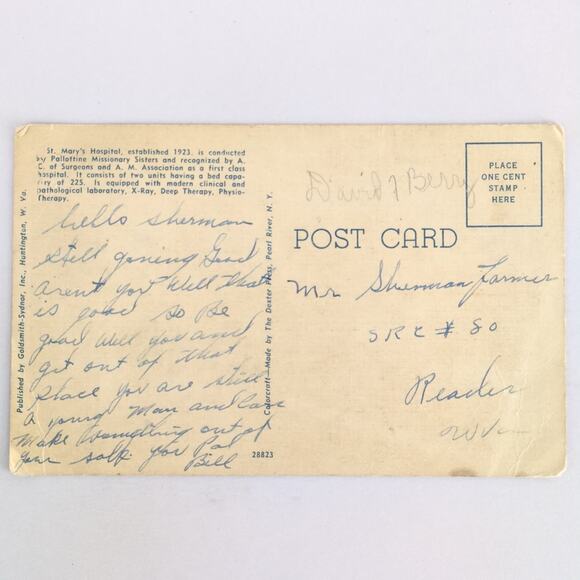 St. Mary's Hospital, established 1923, is conducted
by Pallottine Missionary Sisters and recognized by A.
C. of Surgeons and A. M. Association as a first class
hospital. It consists of two units having a bed capa-
city of 225. Is equipped with modern clinical and
pathological laboratory, X-Ray, Deep Therapy, Physio-
Therapy.
hello sherman
still goning Good
arent you Well that
is good so Be
good Well you and
get out of that
place you are still
a young Man and Can
Make something out of
your solf your Pal
Bill
Published by Goldsmith-Sydnor, Inc., Huntington, W. Va.
Colorcraft—Made by The Dexter Press, Pearl River, N. Y.
28823
David Berry
PLACE
ONE CENT
STAMP
HERE
POST CARD
Mr Sherman Farmer
# 80
Reader
W Va